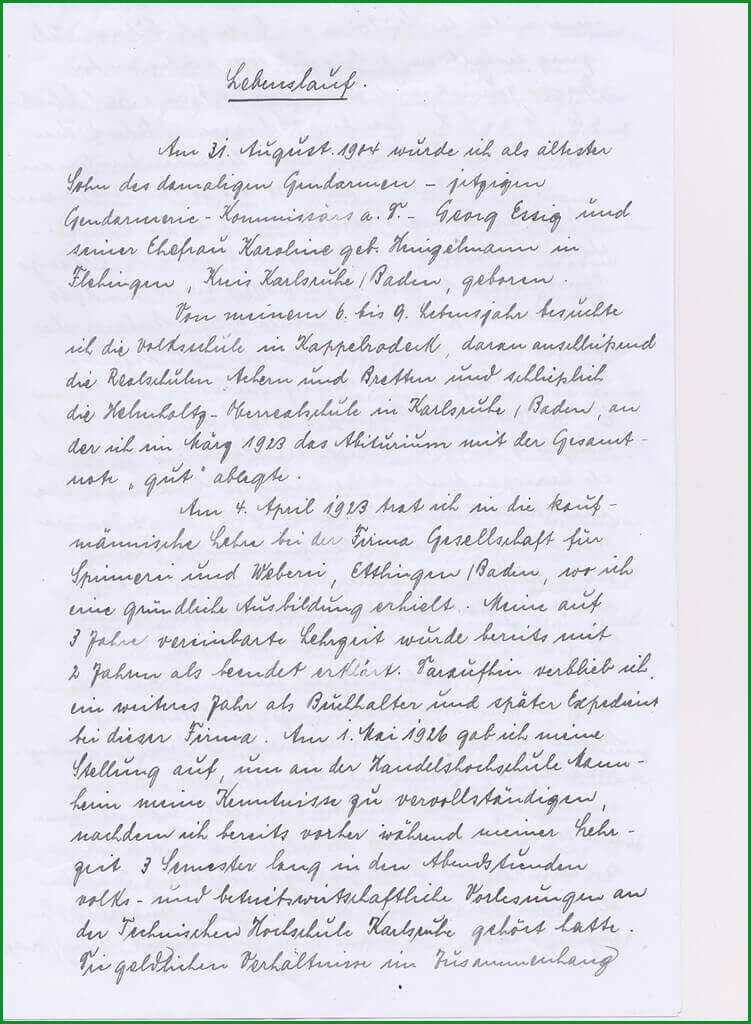 Lebenslauf.
Am 31. August 1904 wurde ich als ältester
Sohn des damaligen Gendarmen – jetzigen
Gendarmerie-Kommissärs a. D. – Georg Essig und
seiner Ehefrau Karoline geb. Hingelmann in
Flehingen, Kreis Karlsruhe/Baden, geboren.
Von meinem 6. bis 9. Lebensjahr besuchte
ich die Volksschule in Kappelrodeck, daran anschließend
die Realschulen Achern und Bretten und schließlich
die Helmholtz-Oberrealschule in Karlsruhe/Baden, an
der ich im März 1923 das Abiturium mit der Gesamt-
note „gut" ablegte.
Am 4. April 1923 trat ich in die kauf-
männische Lehre bei der Firma Gesellschaft für
Spinnerei und Weberei, Ettlingen/Baden, wo ich
eine gründliche Ausbildung erhielt. Meine auf
3 Jahre vereinbarte Lehrzeit wurde bereits mit
2 Jahren als beendet erklärt. Daraufhin verblieb ich
ein weiteres Jahr als Buchhalter und später Expedient
bei dieser Firma. Am 1. Mai 1926 gab ich meine
Stellung auf, um an der Handelshochschule Mann-
heim meine Kenntnisse zu vervollständigen,
nachdem ich bereits vorher während meiner Lehr-
zeit 3 Semester lang in den Abendstunden
volks- und betriebswirtschaftliche Vorlesungen an
der Technischen Hochschule Karlsruhe gehört hatte.
Die geldlichen Verhältnisse im Zusammenhang